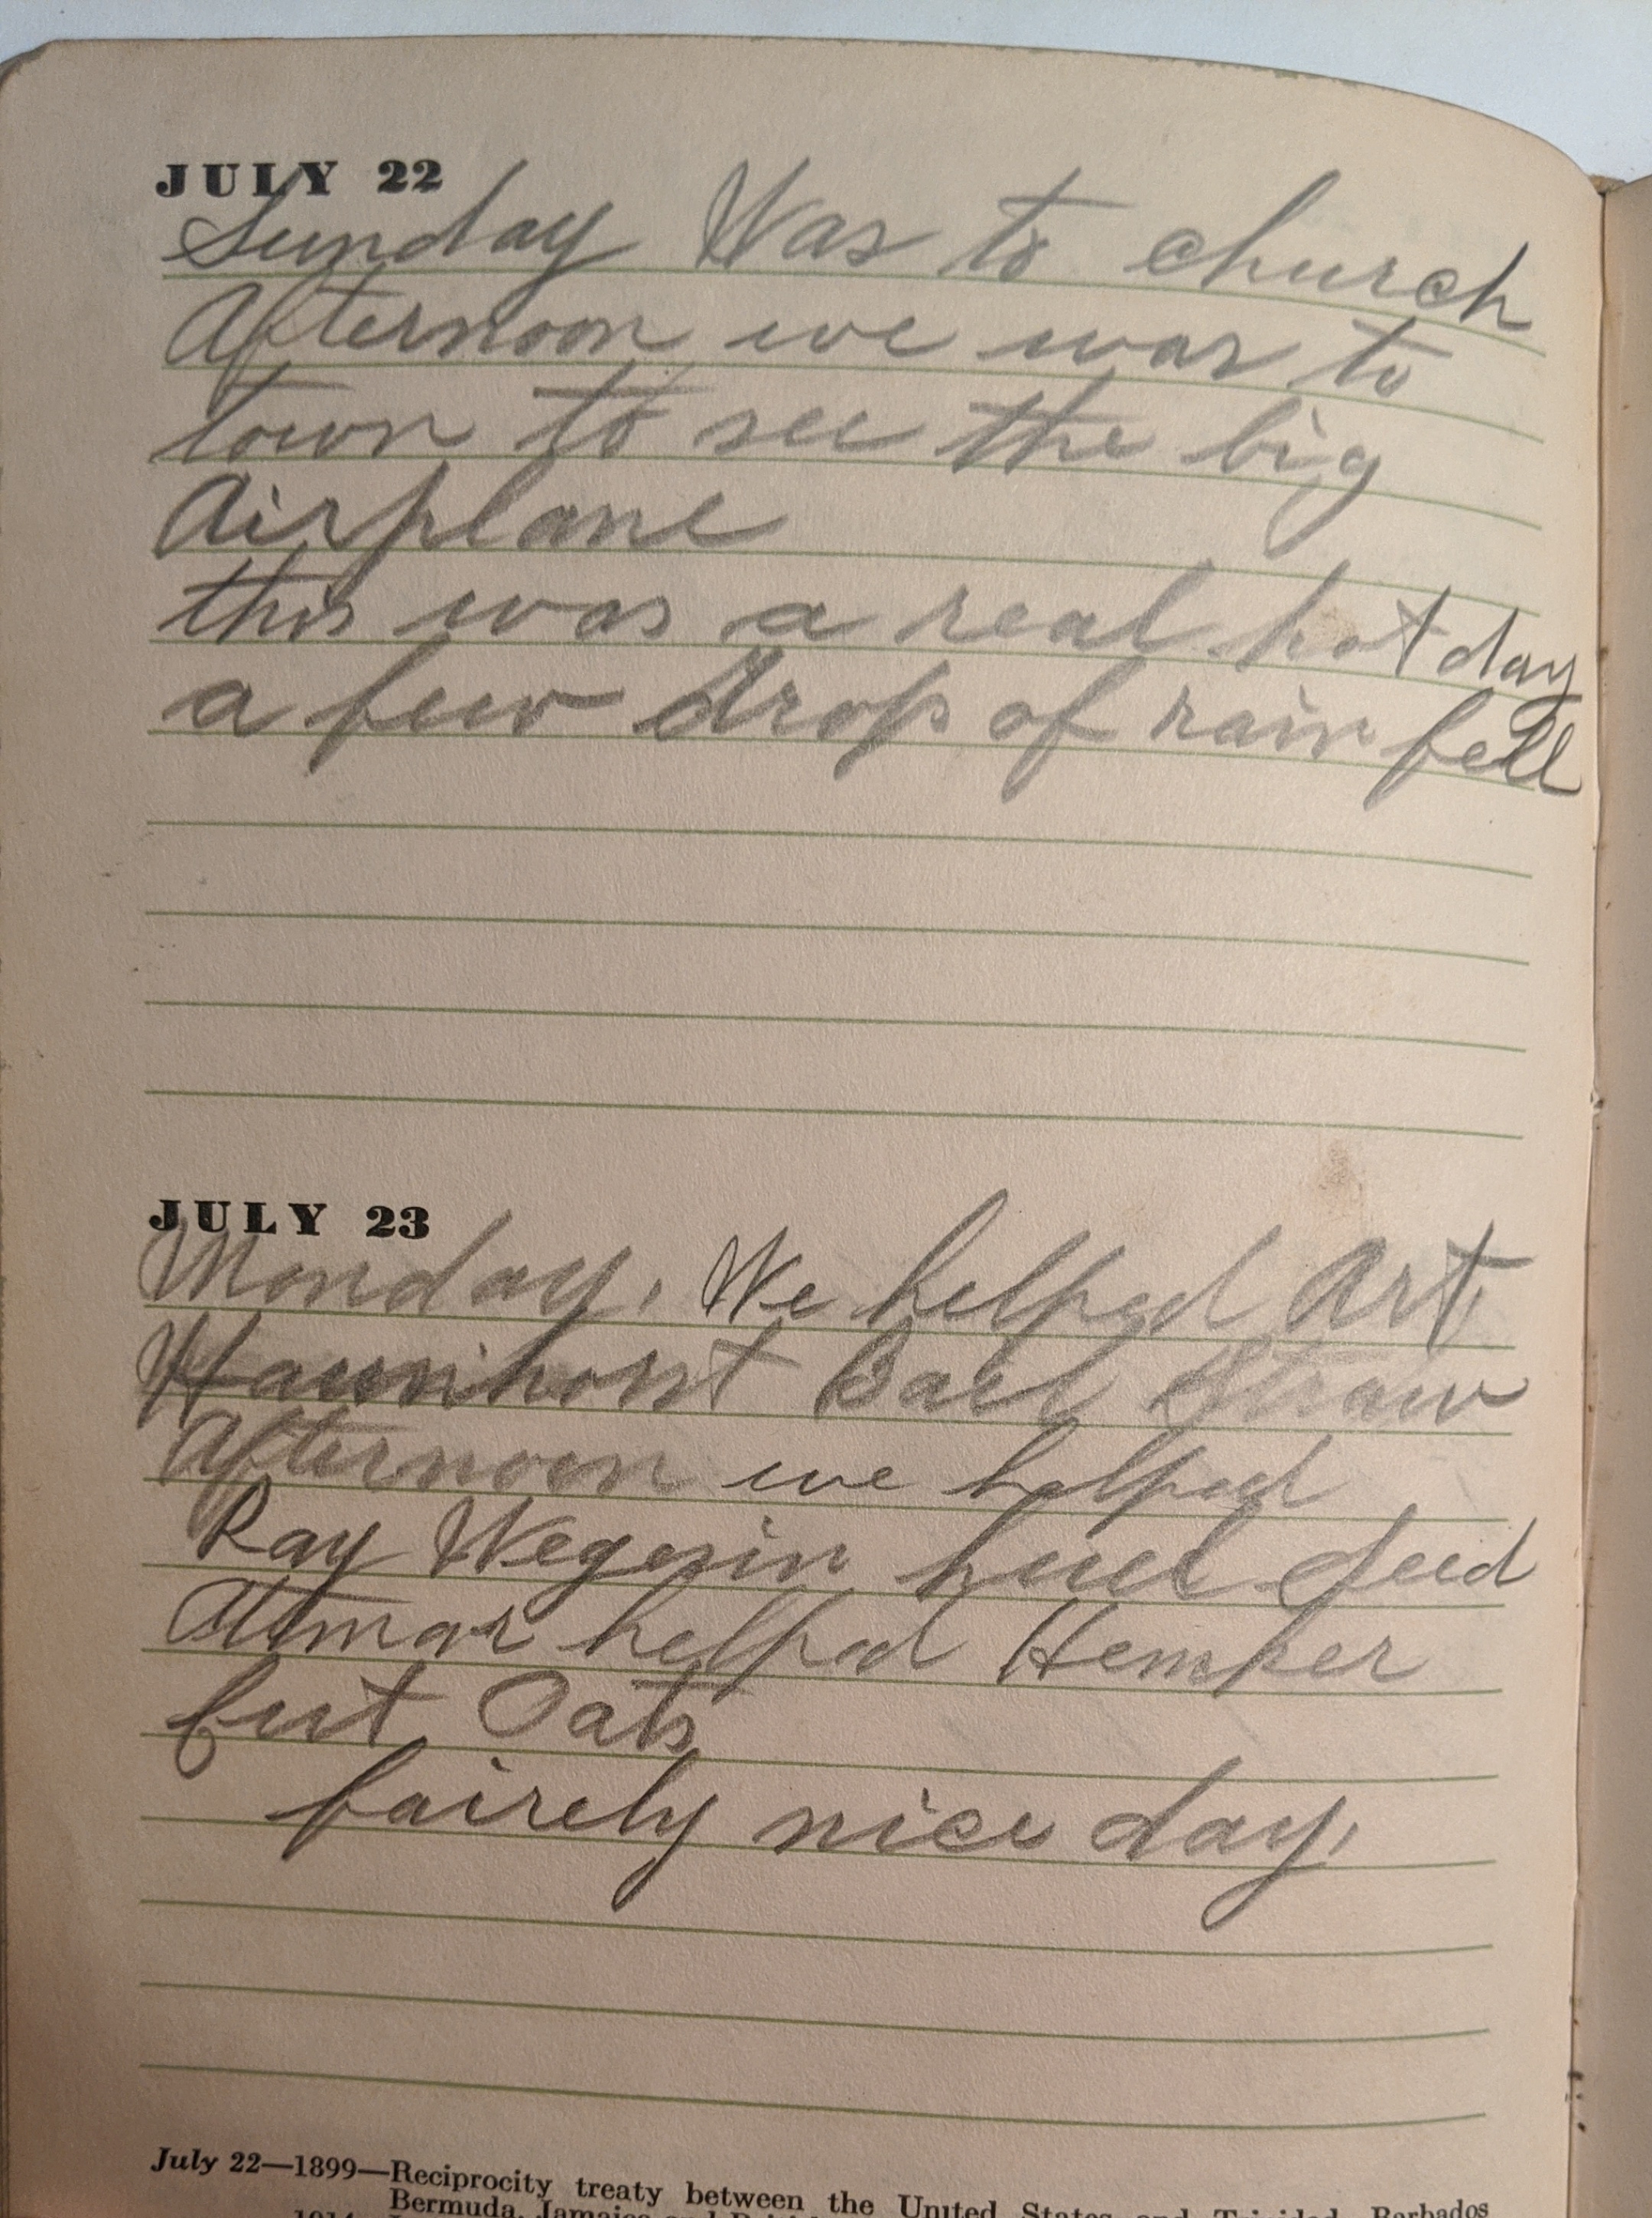 JULY 22
Sunday Was to church
Afternoon we was to
town to see the big
Airplane
this was a real hot day
a few drops of rain fell
JULY 23
Monday, We helped Art,
Haunhorst Bail Straw
Afternoon we helped
Ray Wegesin huel feed
Attmar helped Hemker
fut Oats
fairely nice day,
July 22—1899—Reciprocity treaty between the United States and Trinidad, Barbados
Bermuda, Jamaica and